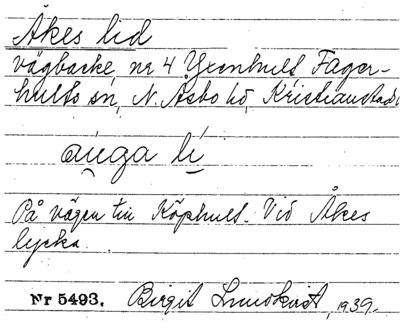 Åkes lid
vägbacke, nr 4 Yxenhult, Fager-
hults sn, N. Åsbo hd, Kristianstads
På vägen till Köphult. Vid Åkes
lycka.
Nr 5493. Birgit Lundkvist, 1939.